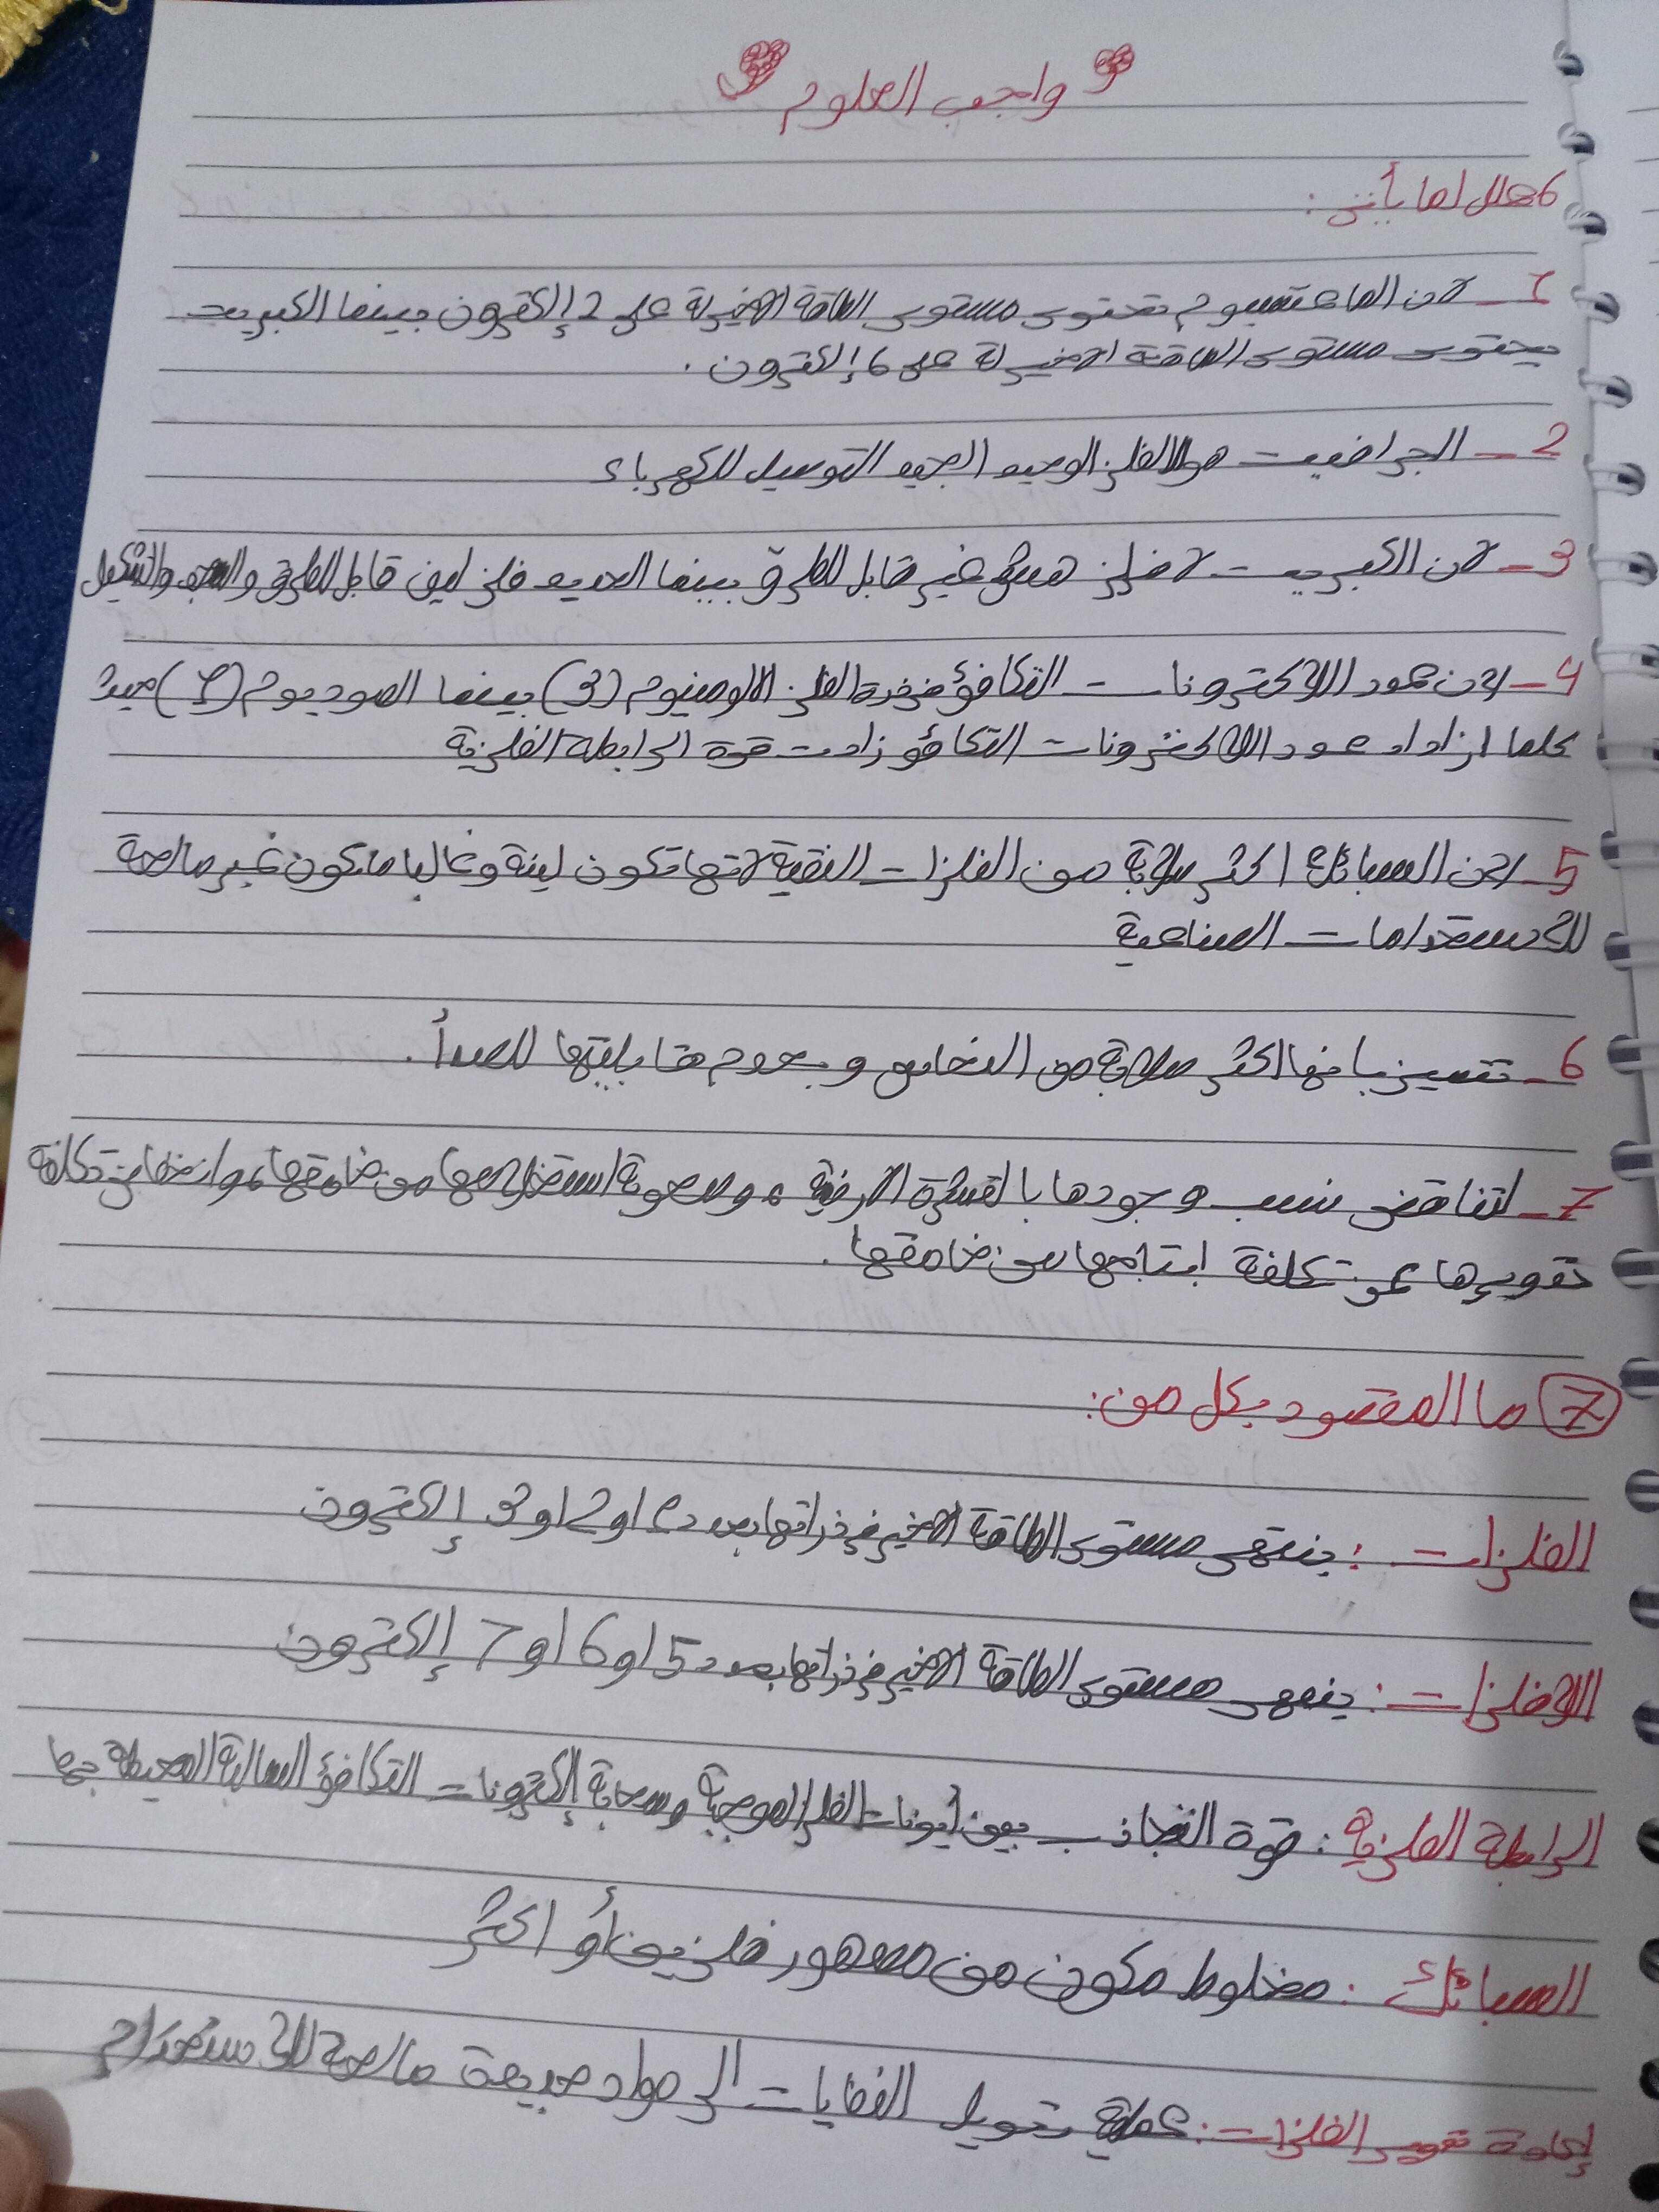 واجب العلوم
6 علل لما يأتي :
1 - لان الماغنسيوم تحتوى مستوى الطاقة الاخيرة على 2 إلكترون بينما الكبريت
يحتوى مستوى الطاقة الاخيرة على 6 إلكترون .
2 - الجرافيت هو اللافلز الوحيد الجيد التوصيل للكهرباء
3 - لان الكبريت لافلز هش غير قابل للطرق بينما الحديد فلز لين قابل للطرق والسحب والتشكيل
4 - لان عدد الالكترونات التكافؤ فى ذرة الفلز الالومنيوم (3) بينما الصوديوم (1) حيث
كلما ازداد عدد الالكترونات التكافؤ زادت قوة الرابطة الفلزية
5 - لان السبائك اكثر صلابة من الفلزات النقية لانها تكون لينة وغالبا ما تكون غير صالحة
للاستخدامات الصناعية
6 - تتميز بانها اكثر صلابة من النحاس وبعدم قابليتها للصدأ .
7 - لتناقص نسب وجودها بالقشرة الارضية ، وصعوبة استخراجها من خاماتها ، وانخفاض تكلفة
تدويرها عن تكلفة انتاجها من خاماتها .
7 ما المقصود بكل من :
الفلزات : ينتهى مستوى الطاقة الاخير فى ذراتها بعدد 1 او 2 او 3 إلكترون
اللافلزات : ينتهى مستوى الطاقة الاخير فى ذراتها بعدد 5 او 6 او 7 إلكترون
الرابطة الفلزية : قوة التجاذب بين أيونات الفلز الموجبة وسحابة إلكترونات التكافؤ السالبة المحيطة بها
السبائك : مخلوط مكون من مصهور فلزين أو اكثر
إعادة تدوير الفلزات : عملية تحويل النفايات الى مواد جديدة صالحة للاستخدام